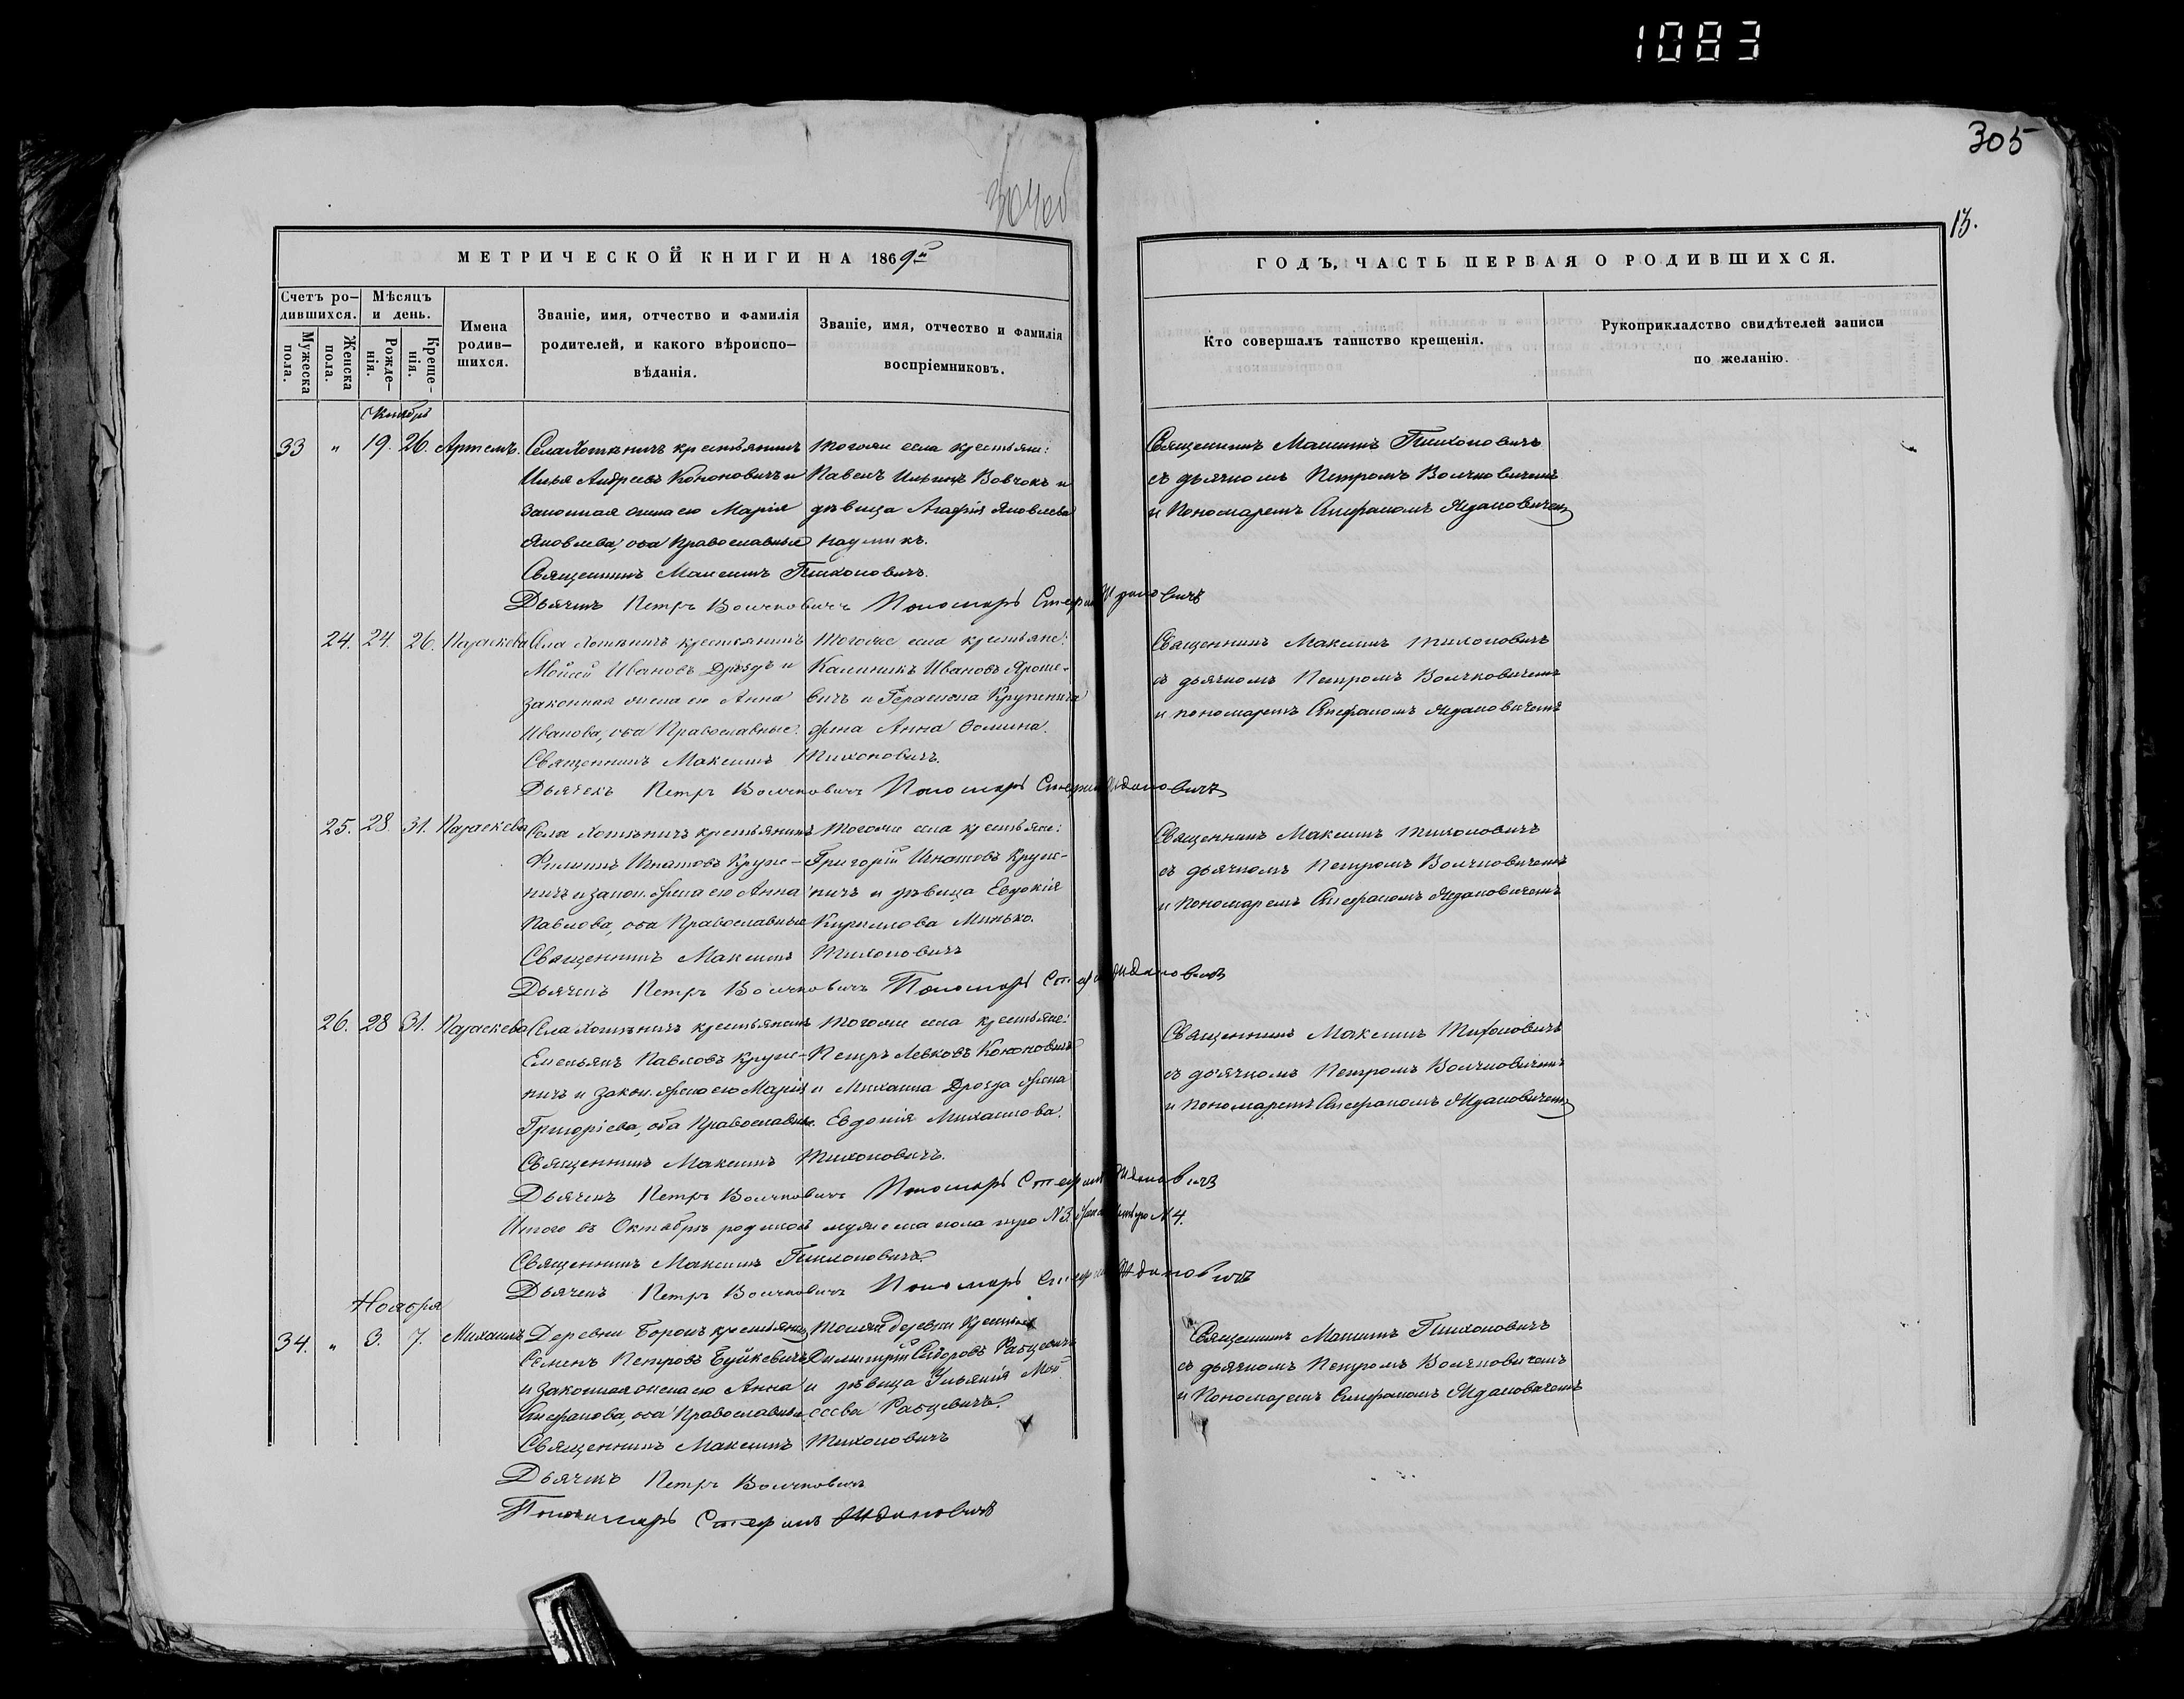 1083
305
304об
13.
МЕТРИЧЕСКОЙ КНИГИ НА 1869й
ГОДЪ, ЧАСТЬ ПЕРВАЯ О РОДИВШИХСЯ.
Счетъ родившихся.
Мужеска пола.
Женска пола.
Мѣсяцъ и день.
Рожденія.
Крещенія.
Имена родившихся.
Званіе, имя, отчество и фамилія родителей, и какого вѣроисповѣданія.
Званіе, имя, отчество и фамилія воспріемниковъ.
Кто совершалъ таинство крещенія.
Рукоприкладство свидѣтелей записи по желанію.
Октябрь
33 " 19. 26. Артемъ.
Села Хотѣничъ крестьянинъ
Илья Андреевъ Кононовичъ и
законная жена его Марія
Яковлева, оба Православные
Тогоже села крестьяне:
Павелъ Ильинъ Вовчокъ и
дѣвица Агафія Яковлева
Священникъ Максимъ Тихоновичъ
съ дьячкомъ Петромъ Волчковичемъ
и Пономаремъ Стефаномъ Ждановичемъ
Священникъ Максимъ Тихоновичъ.
Дьячекъ Петръ Волчковичъ Пономарь Стефанъ Ждановичъ
24. 24. 26. Параскева
Села Хотѣничъ крестьянинъ
Мойсей Ивановъ Дроздъ и
законная жена его Анна
Иванова, оба Православные.
Тогоже села крестьяне:
Калиникъ Ивановъ Яроше-
вичъ и Герасима Крупенича
жена Анна Фомина.
Священникъ Максимъ Тихоновичъ
съ дьячкомъ Петромъ Волчковичемъ
и пономаремъ Стефаномъ Ждановичемъ
Священникъ Максимъ Тихоновичъ.
Дьячекъ Петръ Волчковичъ Пономарь Стефанъ Ждановичъ
25. 28. 31. Параскева
Села Хотѣничъ крестьянинъ
Филипъ Игнатовъ Крупе-
ничъ и закон. жена его Анна
Павлова, оба Православные
Тогоже села крестьяне:
Григорій Игнатовъ Крупе-
ничъ и дѣвица Евдокія
Кирилова Минько.
Священникъ Максимъ Тихоновичъ
съ дьячкомъ Петромъ Волчковичемъ
и Пономаремъ Стефаномъ Ждановичемъ
Священникъ Максимъ Тихоновичъ
Дьячекъ Петръ Волчковичъ Пономарь Стефанъ Ждановичъ
26. 28 31. Параскева
Села Хотѣничъ крестьянинъ
Емельянъ Павловъ Крупе-
ничъ и закон. жена его Марія
Григоріева, оба Православные.
Тогоже села крестьяне:
Петръ Левковъ Кононовичъ
и Михаила Дрозда жена
Евдокія Михаилова.
Священникъ Максимъ Тихоновичъ
съ дьячкомъ Петромъ Волчковичемъ
и Пономаремъ Стефаномъ Ждановичемъ
Священникъ Максимъ Тихоновичъ.
Дьячекъ Петръ Волчковичъ Пономарь Стефанъ Ждановичъ
Итого въ Октябрѣ родилось мужеска пола N 3. N 4.
Священникъ Максимъ Тихоновичъ.
Дьячекъ Петръ Волчковичъ Пономарь Стефанъ Ждановичъ
Ноября
34. " 3. 7. Михаилъ
Деревни Боръ крестьянинъ
Семенъ Петровъ Буйкевичъ
и законная жена его Анна
Стефанова, оба Православные
Тойже деревни крестьяне
Димитрій Сидоровъ Рабцевичъ
и дѣвица Ульянія Мой-
сеева Рабцевичъ.
Священникъ Максимъ Тихоновичъ
съ дьячкомъ Петромъ Волчковичемъ
и Пономаремъ Стефаномъ Ждановичемъ
Священникъ Максимъ Тихоновичъ
Дьячекъ Петръ Волчковичъ
Пономарь Стефанъ Ждановичъ